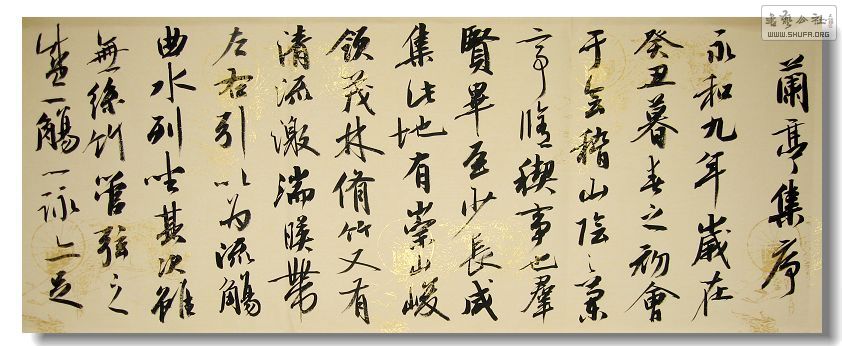 蘭亭集序
永和九年歲在
癸丑暮春之初會
于會稽山陰之蘭
亭脩稧事也羣
賢畢至少長咸
集此地有崇山峻
領茂林脩竹又有
清流激湍暎帶
左右引以為流觴
曲水列坐其次雖
無絲竹管弦之
盛一觴一詠亦足
书艺公社
WWW.SHUFA.ORG